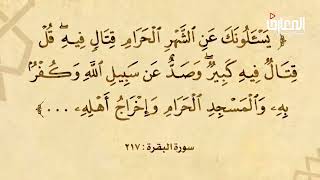 المعارف
﴿ يَسْـَٔلُونَكَ عَنِ الشَّهْرِ الْحَرَامِ قِتَالٍ فِيهِ ۖ قُلْ
قِتَالٌ فِيهِ كَبِيرٌ ۖ وَصَدٌّ عَن سَبِيلِ اللَّهِ وَكُفْرٌۢ
بِهِۦ وَالْمَسْجِدِ الْحَرَامِ وَإِخْرَاجُ أَهْلِهِۦ ... ﴾
سورة البقرة : ٢١٧